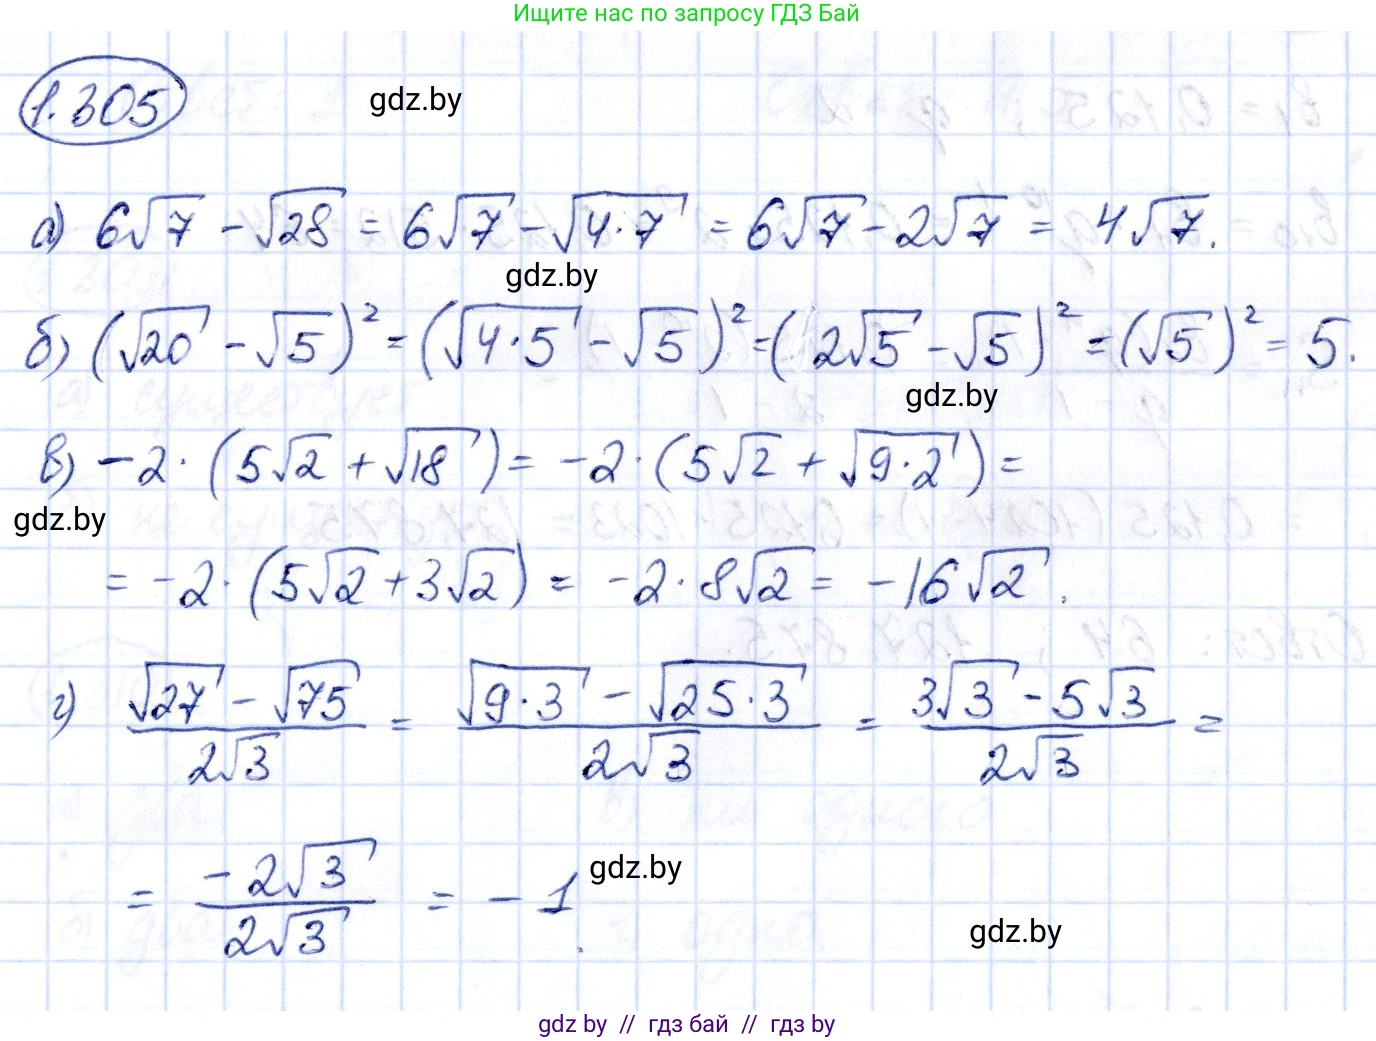 Ищите нас по запросу ГДЗ Бай
1.305
gdz.by
а) 6√7 - √28 = 6√7 - √4·7 = 6√7 - 2√7 = 4√7.
gdz.by
б) (√20 - √5)² = (√4·5 - √5)² = (2√5 - √5)² = (√5)² = 5.
gdz.by
в) -2·(5√2 + √18) = -2·(5√2 + √9·2) =
gdz.by
= -2·(5√2 + 3√2) = -2·8√2 = -16√2.
г) (√27 - √75)/(2√3) = (√9·3 - √25·3)/(2√3) = (3√3 - 5√3)/(2√3) =
= (-2√3)/(2√3) = -1.
gdz.by
gdz.by
gdz by // гдз бай // гдз by